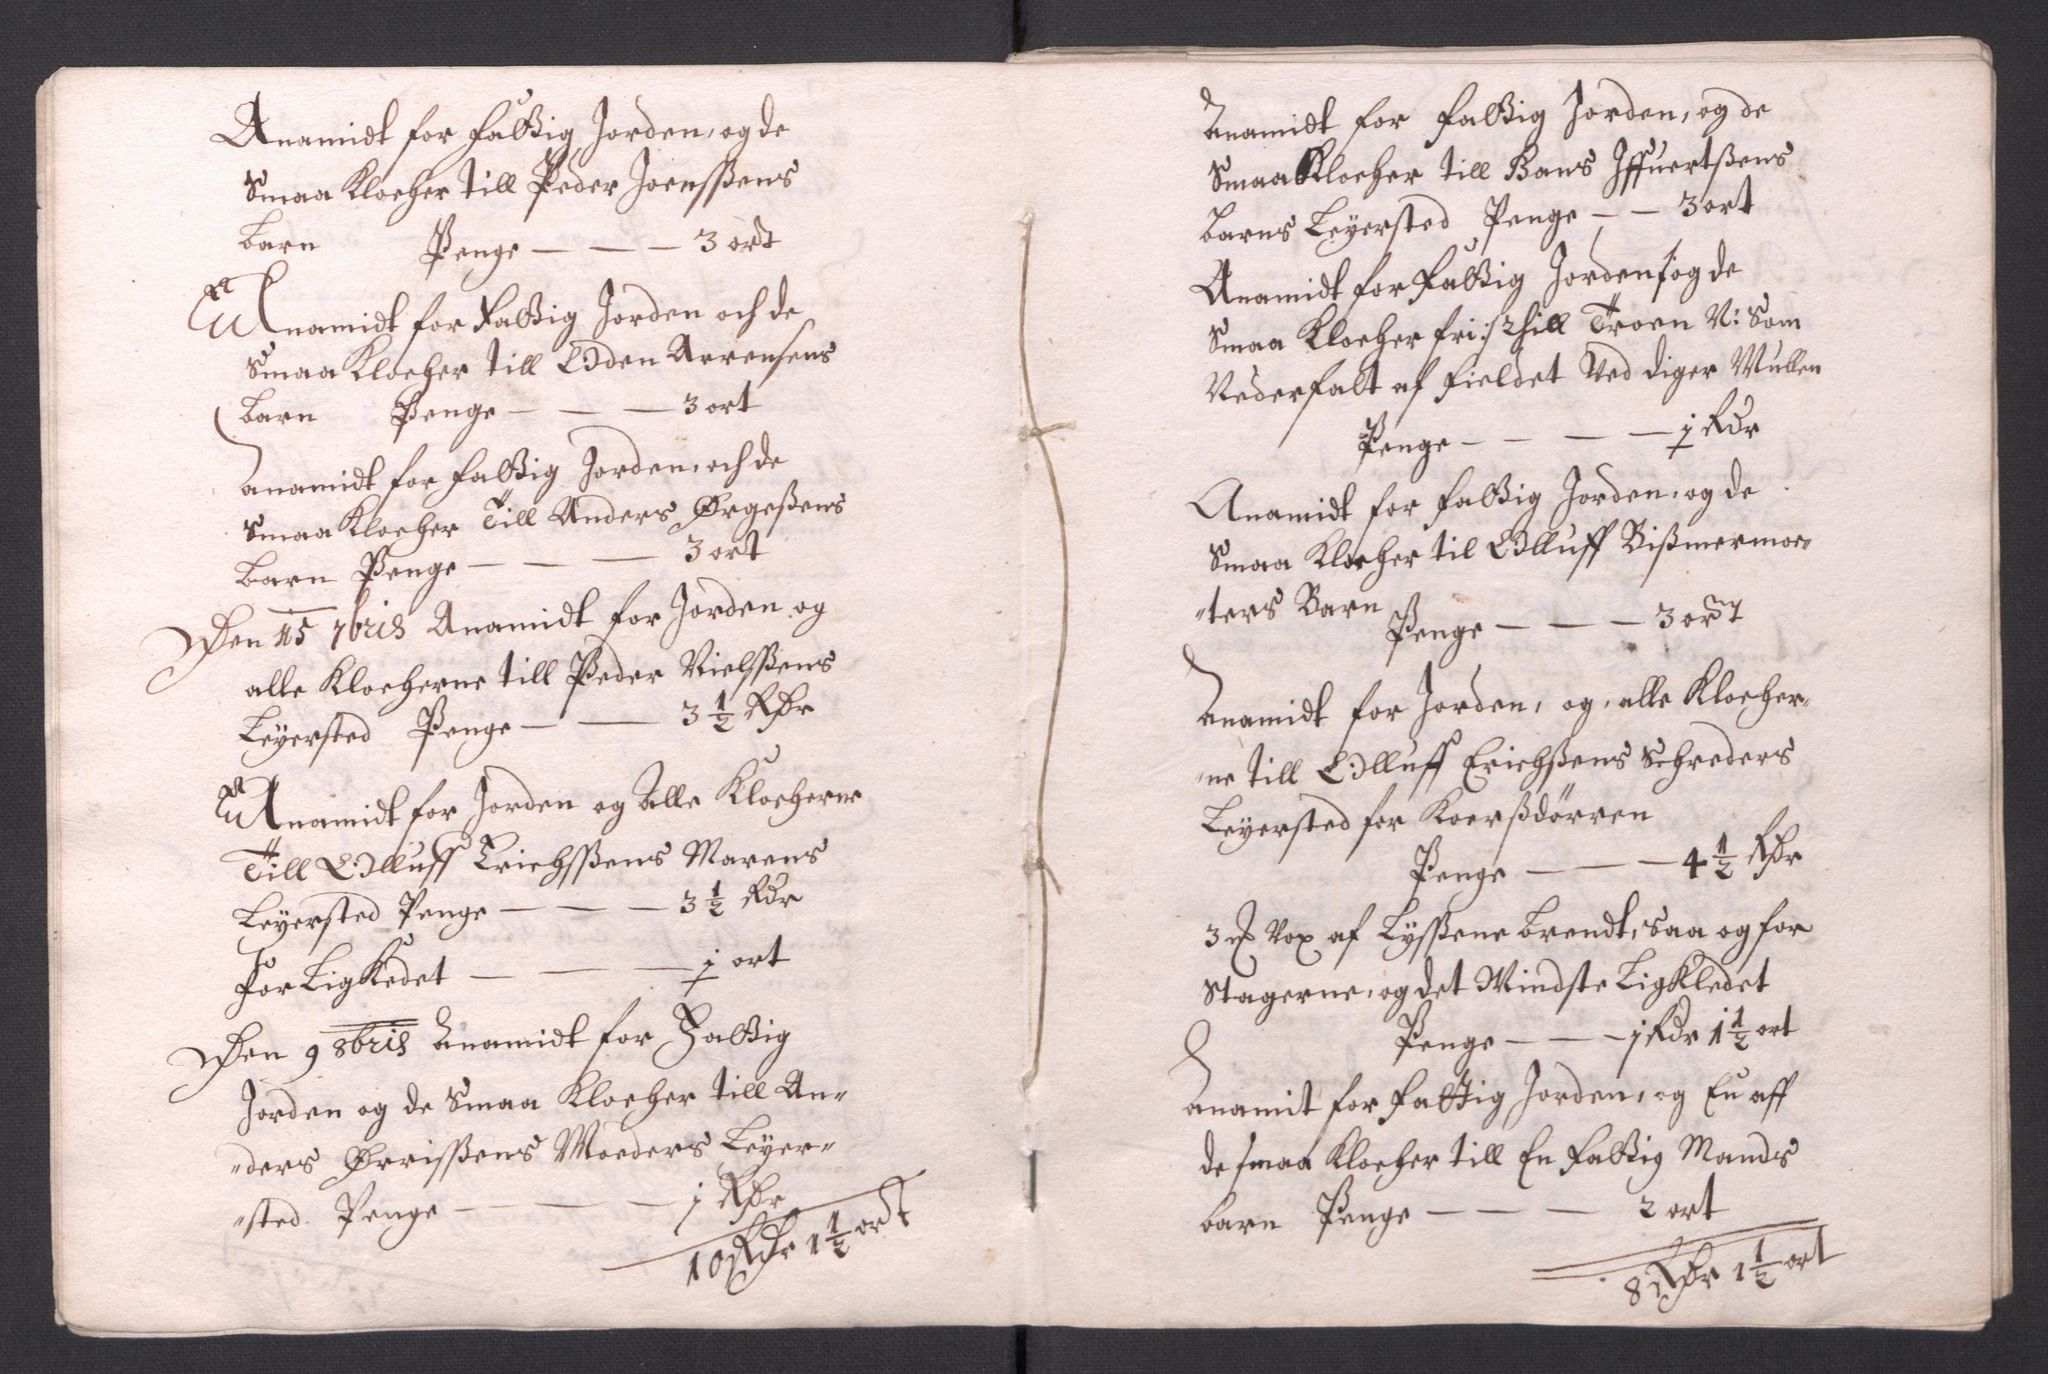 Anamidt for Fattig Jorden, og de
Smaa Klocher till Peder Joenssens
barn Penge — — — 3 ort
Anamidt for Fattig Jorden och de
Smaa Klocher till Odden Arrensens
barn Penge — — — 3 ort
Anamidt for Fattig Jorden, och de
Smaa Klocher Till Anders Ørgeßens
barn Penge — — — 3 ort
Den 15 7bris Anamidt for Jorden og
alle Klocherne till Peder Nielssens
Leyersted Penge — — 3 1/2 Rdr
Anamidt for Jorden og Alle Klocherne
Till Olluff Erichssens Marens
Leyersted Penge — — — 3 1/2 Rdr
For Lig Kledet — — — 1 ort
Den 9 8bris Anamidt for Fattig
Jorden og de Smaa Klocher till An-
-ders Ørrisßens Moeders Leyer-
-sted. Penge — — — — 1 Rdr
10 Rdr 1 1/2 ort
Anamidt for Fattig Jorden, og de
Smaa Klocher till Hans Iffuertßens
barns Leyersted Penge — — 3 ort
Anamidt for Fattig Jorden /: og de
Smaa Klocher fri :/ till Troen N: Som
Nederfalt af Fieldet Ved diger Mullen
Penge — — — — 1 Rdr
Anamidt for Fattig Jorden, og de
Smaa Klocher til Olluff Bißmermoe-
-ters Barn
Penge — — — 3 ort
Anamidt for Jorden, og, alle Klocher-
-ne till Olluff Erichßens Schreders
Leyersted for Koerßdörren
Penge — — — 4 1/2 Rdr
3 ℔ Vox af Lyssene brendt, saa og for
Stagerne, og det Mindste Lig Kledet
Penge — — — 1 Rdr 1 1/2 ort
Anamit for Fattig Jorden, og En aff
de smaa Klocher till En Fattig Mands
barn Penge — — — 2 ort
8 Rdr 1 1/2 ort